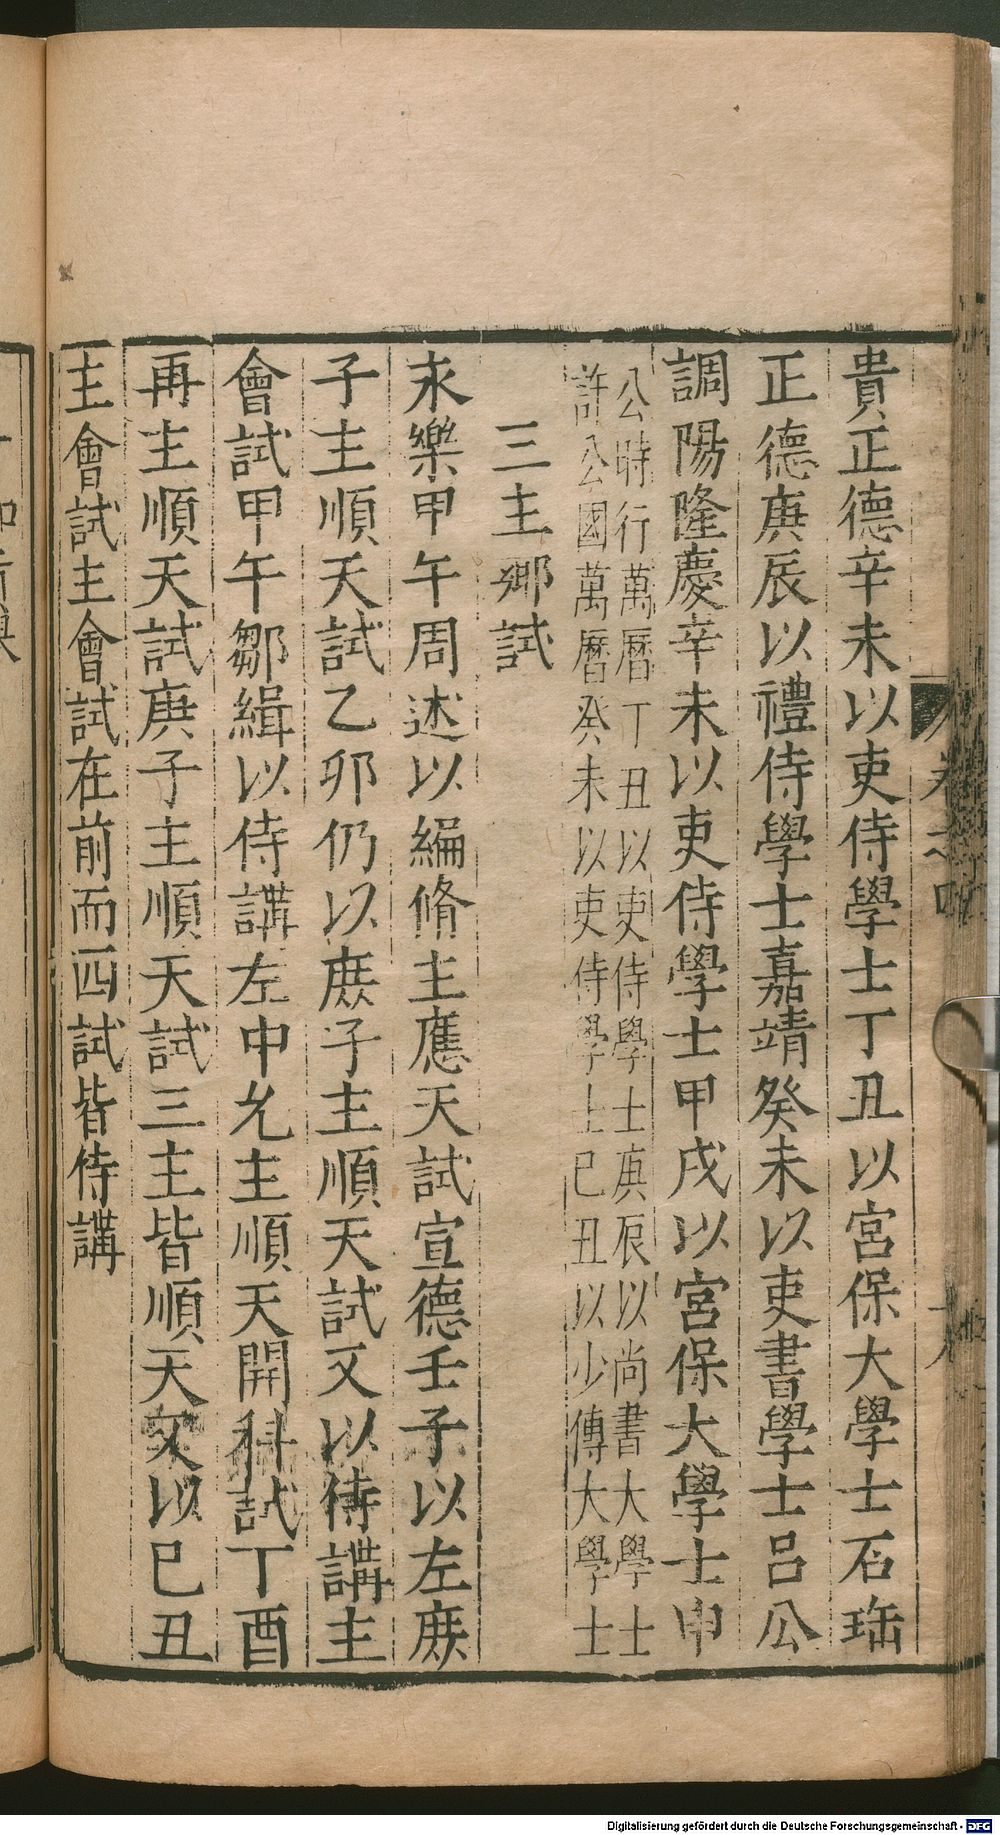 貴正德辛未以吏侍學士丁丑以宮保大學士石珤
正德庚辰以禮侍學士嘉靖癸未以吏書學士呂公
調陽隆慶辛未以吏侍學士甲戌以宮保大學士申
公時行萬曆丁丑以吏侍學士庚辰以尚書大學士
許公國萬曆癸未以吏侍學士己丑以少傅大學士
三主鄉試
永樂甲午周述以編脩主應天試宣德壬子以左庶
子主順天試乙卯仍以庶子主順天試又以侍講主
會試甲午鄒緝以侍講左中允主順天開科試丁酉
再主順天試庚子主順天試三主皆順天又以己丑
主會試主會試在前而四試皆侍講
卷之四
Digitalisierung gefördert durch die Deutsche Forschungsgemeinschaft - DFG